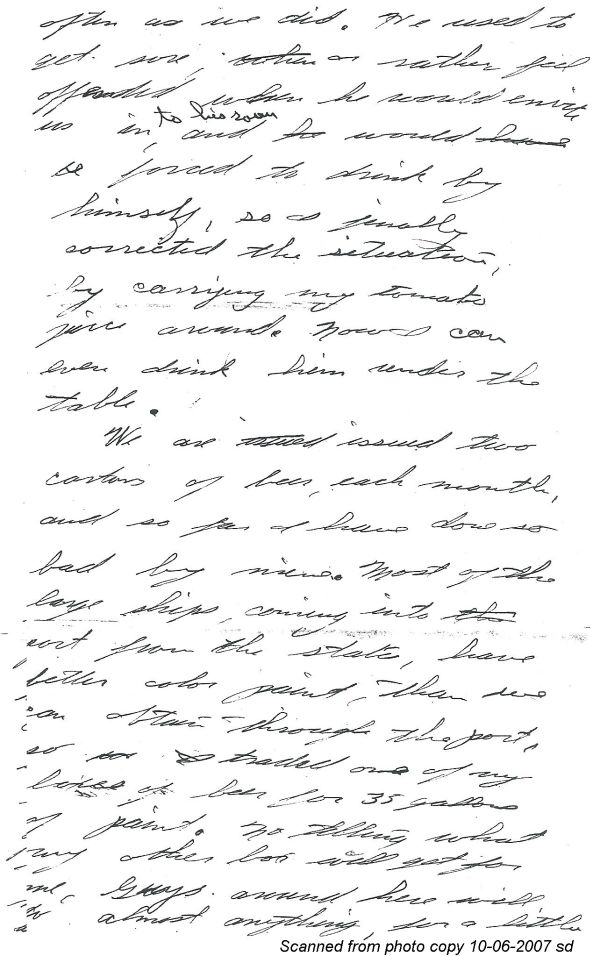 often as we did. He used to
get sore, when or rather feel
offended when he would envite
us in, to his room and he would have
be forced to drink by
himself, so I finally
corrected the situation,
by carrying my tomato
juice around. Now I can
even drink him under the
table.
We are issued two
cartons of beer, each month,
and so far I have done so
bad by mine. Most of the
large ships, coming into the
port from the states, have
better color paint, than we
can obtain through the port,
so I traded one of my
boxes of beer for 35 gallons
of paint. No telling what
my other box will get for
me. Guys around here will
do almost anything, for a little
Scanned from photo copy 10-06-2007 sd